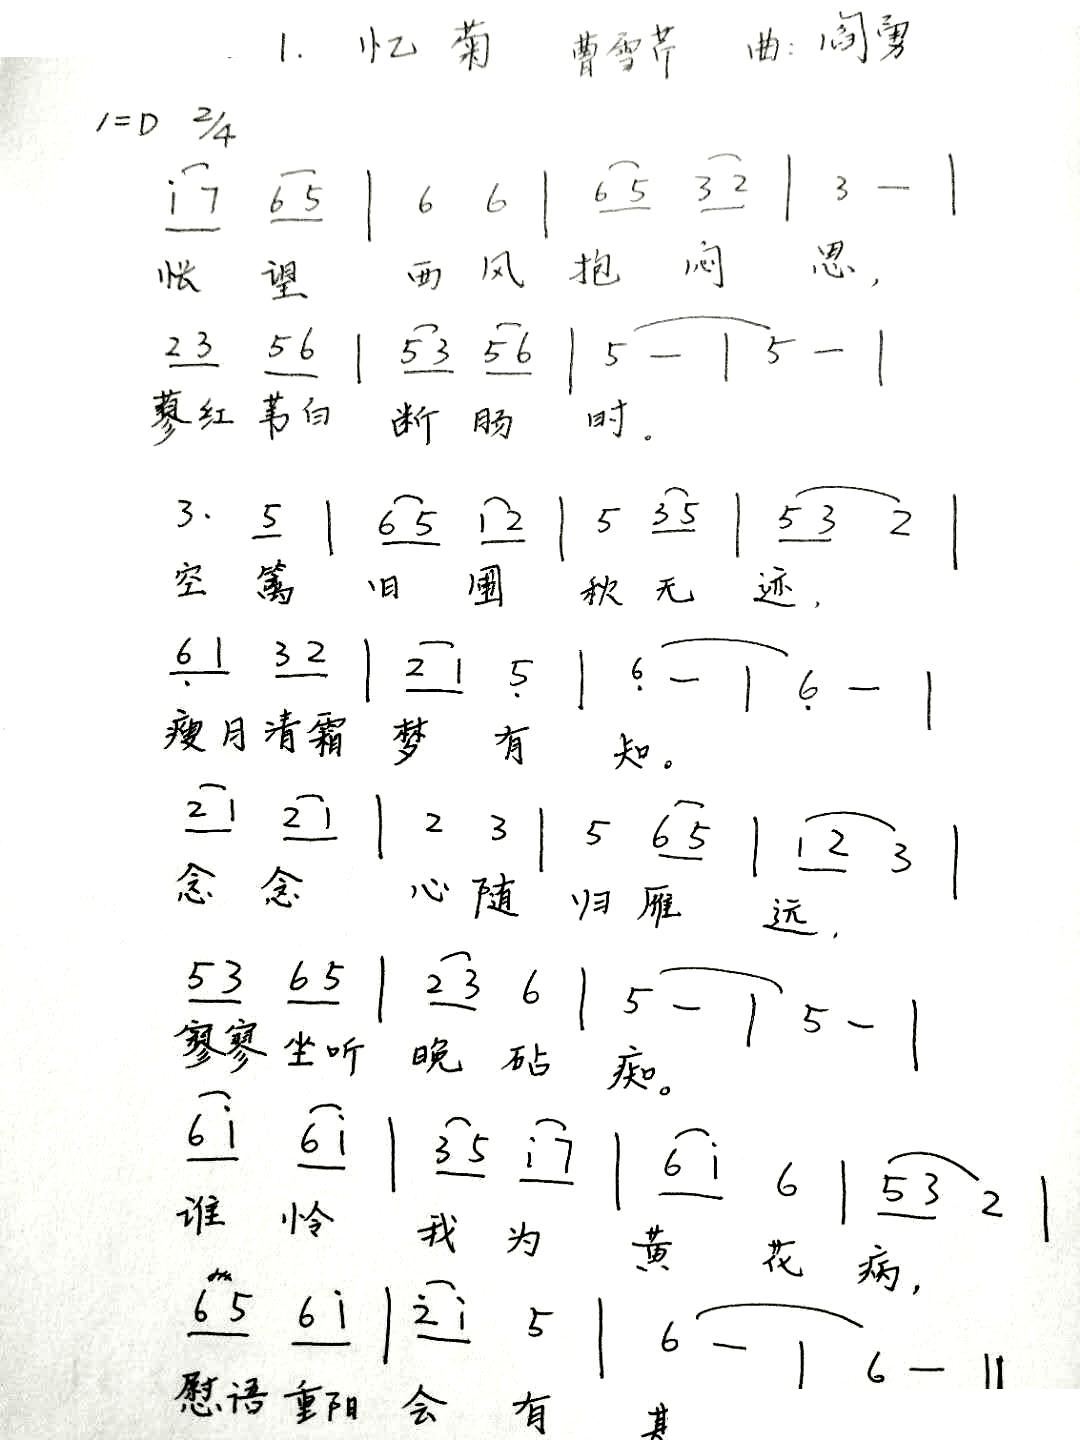 1. 忆菊 曹雪芹 曲:阎勇
1=D 2/4
i7 65 | 6 6 | 65 32 | 3 — |
怅望 西风抱闷思,
23 56 | 53 56 | 5 — | 5 — |
蓼红苇白断肠时。
3. 5 | 65 i2 | 5 35 | 53 2 |
空篱旧圃秋无迹,
61 32 | 21 5 | 6 — | 6 — |
瘦月清霜梦有知。
21 21 | 2 3 | 5 65 | 12 3 |
念念心随归雁远,
53 65 | 23 6 | 5 — | 5 — |
寥寥坐听晚砧痴。
6i 6i | 35 i7 | 6i 6 | 53 2 |
谁怜我为黄花病,
65 6i | 2i 5 | 6 — | 6 — ‖
慰语重阳会有